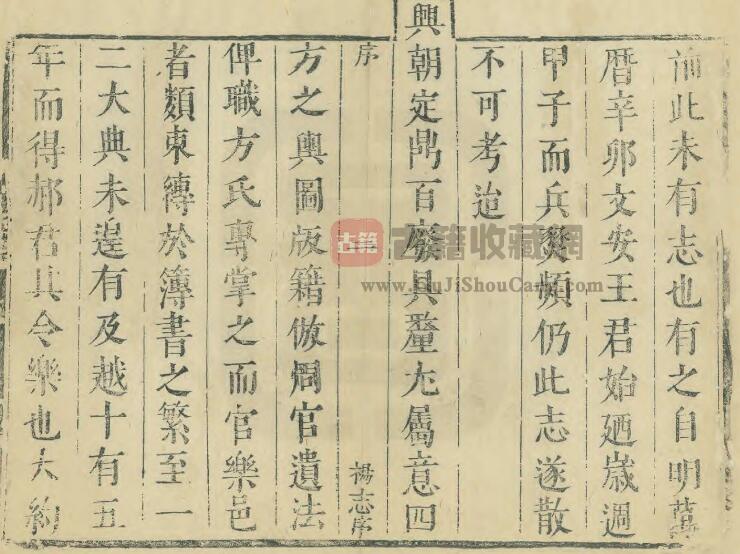 前此未有志也有之自明萬
曆辛卯文安王君始廼歲週
甲子而兵燹頻仍此志遂散
不可考迨
興朝定鼎百廢具釐尤屬意四
序 楊志序
方之輿圖版籍倣周官遺法
俾職方氏專掌之而官樂邑
者類束縛於簿書之繁至一
二大典未遑有及越十有五
年而得郝君其令樂也大約
古籍 古籍收藏網
www.GuJiShouCang.com